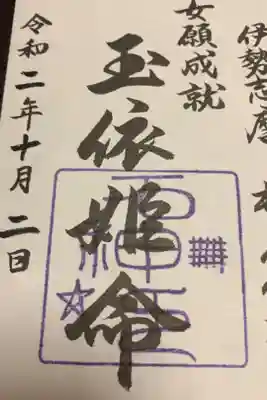 伊勢志摩
女願成就
玉依姫命
令和二年十月二日